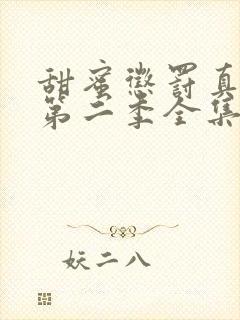 甜蜜懲罰真
第二季全集
妖二八